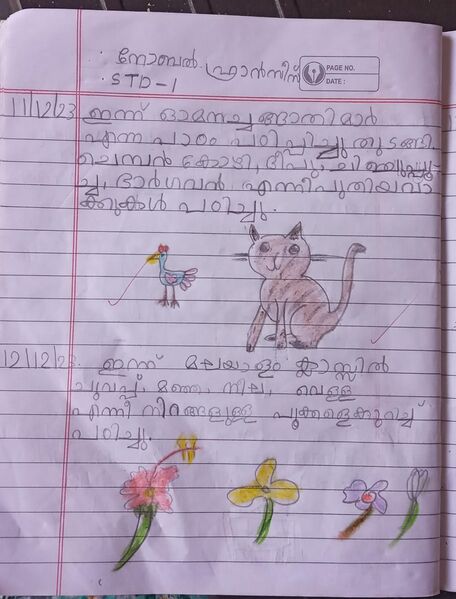 നോബൽ ഫ്രാൻസീസ്
STD-1
PAGE NO.
DATE :
11/12/23 ഇന്ന് ഓമനച്ചങ്ങാതിമാർ
എന്ന പാഠം പഠിപ്പിച്ചു തുടങ്ങി.
ചെമ്പൻ കോഴി,
ഭാർഗവൻ എന്നീ പുതിയ വാ
ക്കുകൾ പഠിച്ചു.
12/12/23. ഇന്ന് മലയാളം ക്ലാസ്സിൽ
ചുവപ്പ്, മഞ്ഞ, നീല, വെള്ള
എന്നീ നിറങ്ങളുള്ള പൂക്കളെക്കുറിച്ച്
പഠിച്ചു.